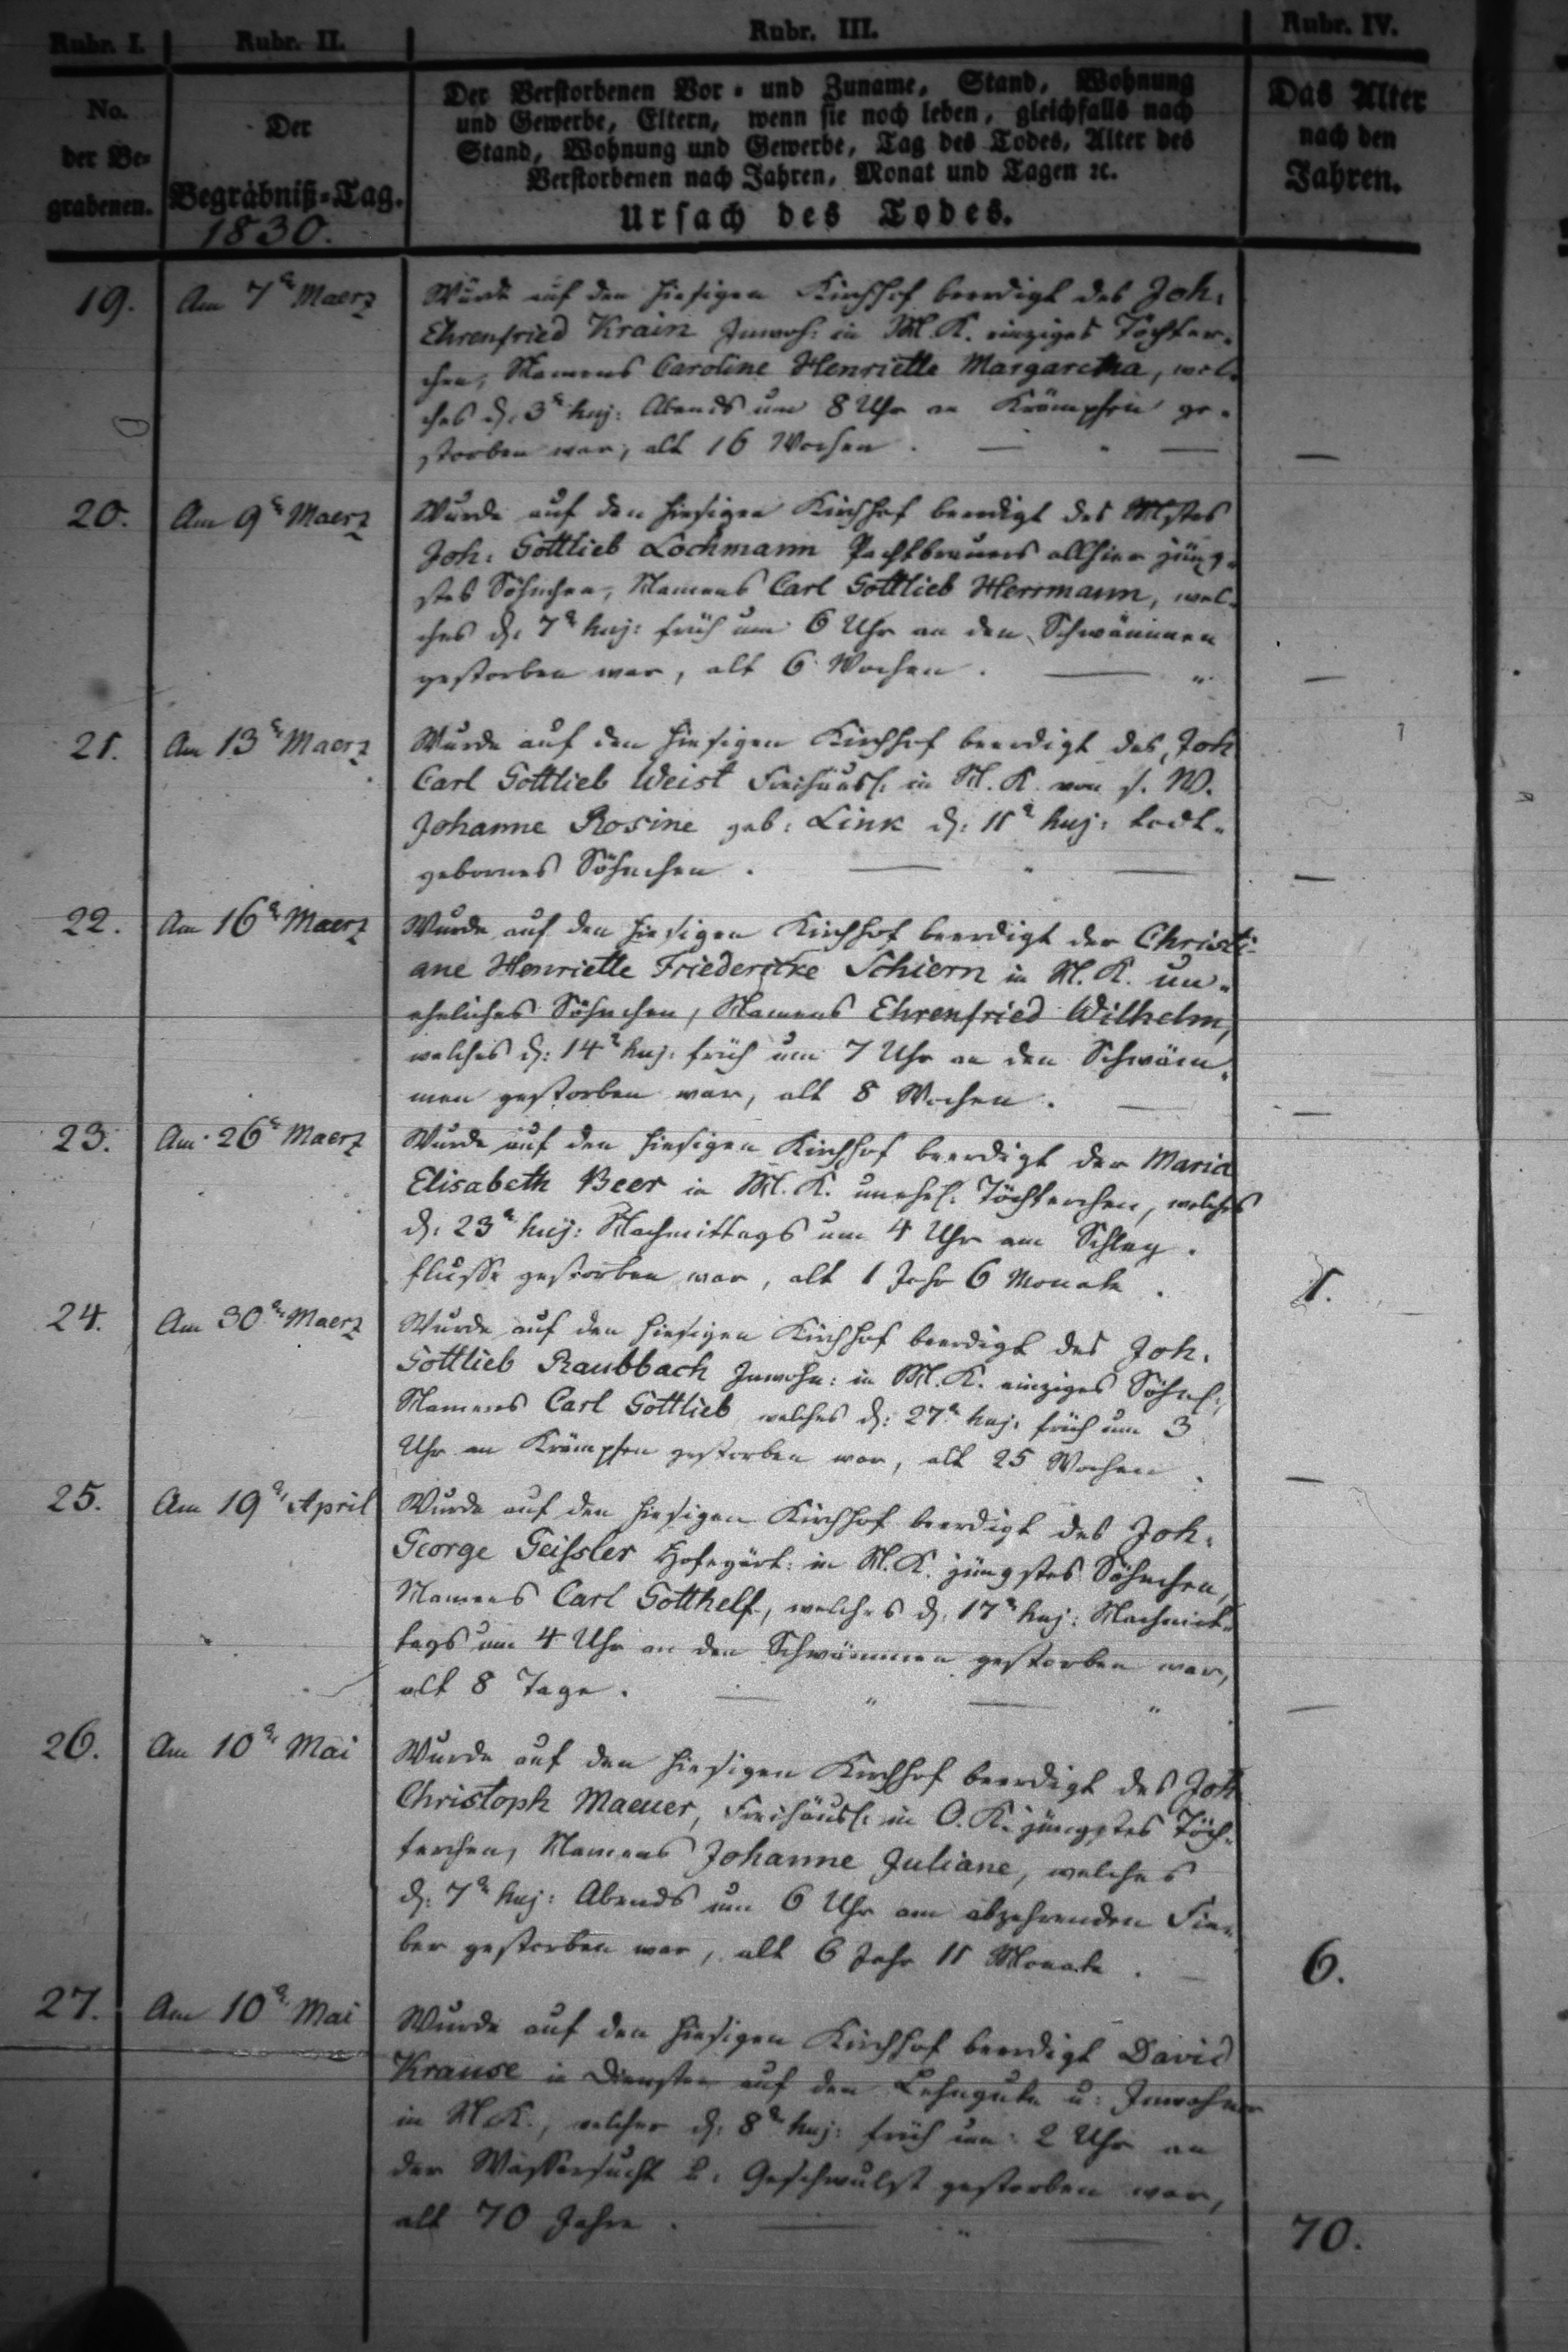 Rubr. I. Rubr. II. Rubr. III. Rubr. IV.
No. der Be=
grabenen.
Der
Begräbniß=Tag.
1830.
Der Verstorbenen Vor = und Zuname, Stand, Wohnung
und Gewerbe, Eltern, wenn sie noch leben, gleichfalls nach
Stand, Wohnung und Gewerbe, Tag des Todes, Alter des
Verstorbenen nach Jahren, Monat und Tagen ꝛc.
Ursach des Todes.
Das Alter
nach den
Jahren.
19. Am 7n Maerz Wurde auf den hiesigen Kirchhof beerdigt des Joh:
Ehrenfried Krain Inwoh: in M. K. einziges Töchter=
chen, Namens Caroline Henriette Margaretha, wel=
ches d. 3n huj: Abends um 8 Uhr an Krämpfen ge=
storben war, alt 16 Wochen. —
20. Am 9n Maerz Wurde auf den hiesigen Kirchhof beerdigt des Mstrs
Joh: Gottlieb Lochmann Pachtbrauers allhier jüng=
stes Söhnchen, Namens Carl Gottlieb Herrmann, wel=
ches d. 7n huj: früh um 6 Uhr an den Schwämmen
gestorben war, alt 6 Wochen. —
21. Am 13n Maerz Wurde auf den hiesigen Kirchhof beerdigt des Joh
Carl Gottlieb Weist Freihäusl: in M. K. von s. W.
Johanne Rosine geb: Link d: 11n huj: todt=
gebornes Söhnchen. —
22. Am 16n Maerz Wurde auf den hiesigen Kirchhof beerdigt der Christi=
ane Henriette Friedericke Schiern in M. K. un=
eheliches Söhnchen, Namens Ehrenfried Wilhelm,
welches d: 14n huj: früh um 7 Uhr an den Schwäm=
men gestorben war, alt 8 Wochen. —
23. Am 26n Maerz Wurde auf den hiesigen Kirchhof beerdigt der Maria
Elisabeth Beer in M. K. unehel: Töchterchen, welches
d: 23n huj: Nachmittags um 4 Uhr am Schlag=
flusse gestorben war, alt 1 Jahr 6 Monate. 1.
24. Am 30n Maerz Wurde auf den hiesigen Kirchhof beerdigt des Joh:
Gottlieb Raubbach Inwohn: in M. K. einziges Söhnch:,
Namens Carl Gottlieb welches d: 27n huj: früh um 3
Uhr an Krämpfen gestorben war, alt 25 Wochen. —
25. Am 19n April Wurde auf den hiesigen Kirchhof beerdigt des Joh:
George Geißler Hofegärt: in M. K. jüngstes Söhnchen,
Namens Carl Gotthelf, welches d. 17n huj: Nachmit=
tags um 4 Uhr an den Schwämmen gestorben war,
alt 8 Tage. —
26. Am 10n Mai Wurde auf den hiesigen Kirchhof beerdigt des Joh
Christoph Maeuer, Freihäusl: in O. K. jüngstes Töch=
terchen, Namens Johanne Juliane, welches
d: 7n huj: Abends um 6 Uhr am abzehrenden Fie=
ber gestorben war, alt 6 Jahr 11 Monate. 6.
27. Am 10n Mai Wurde auf den hiesigen Kirchhof beerdigt David
Krause in Diensten auf den Lehngute u: Inwohner
in M. K., welcher d: 8n huj: früh um 2 Uhr an
der Wassersucht u: Geschwulst gestorben war,
alt 70 Jahre. 70.